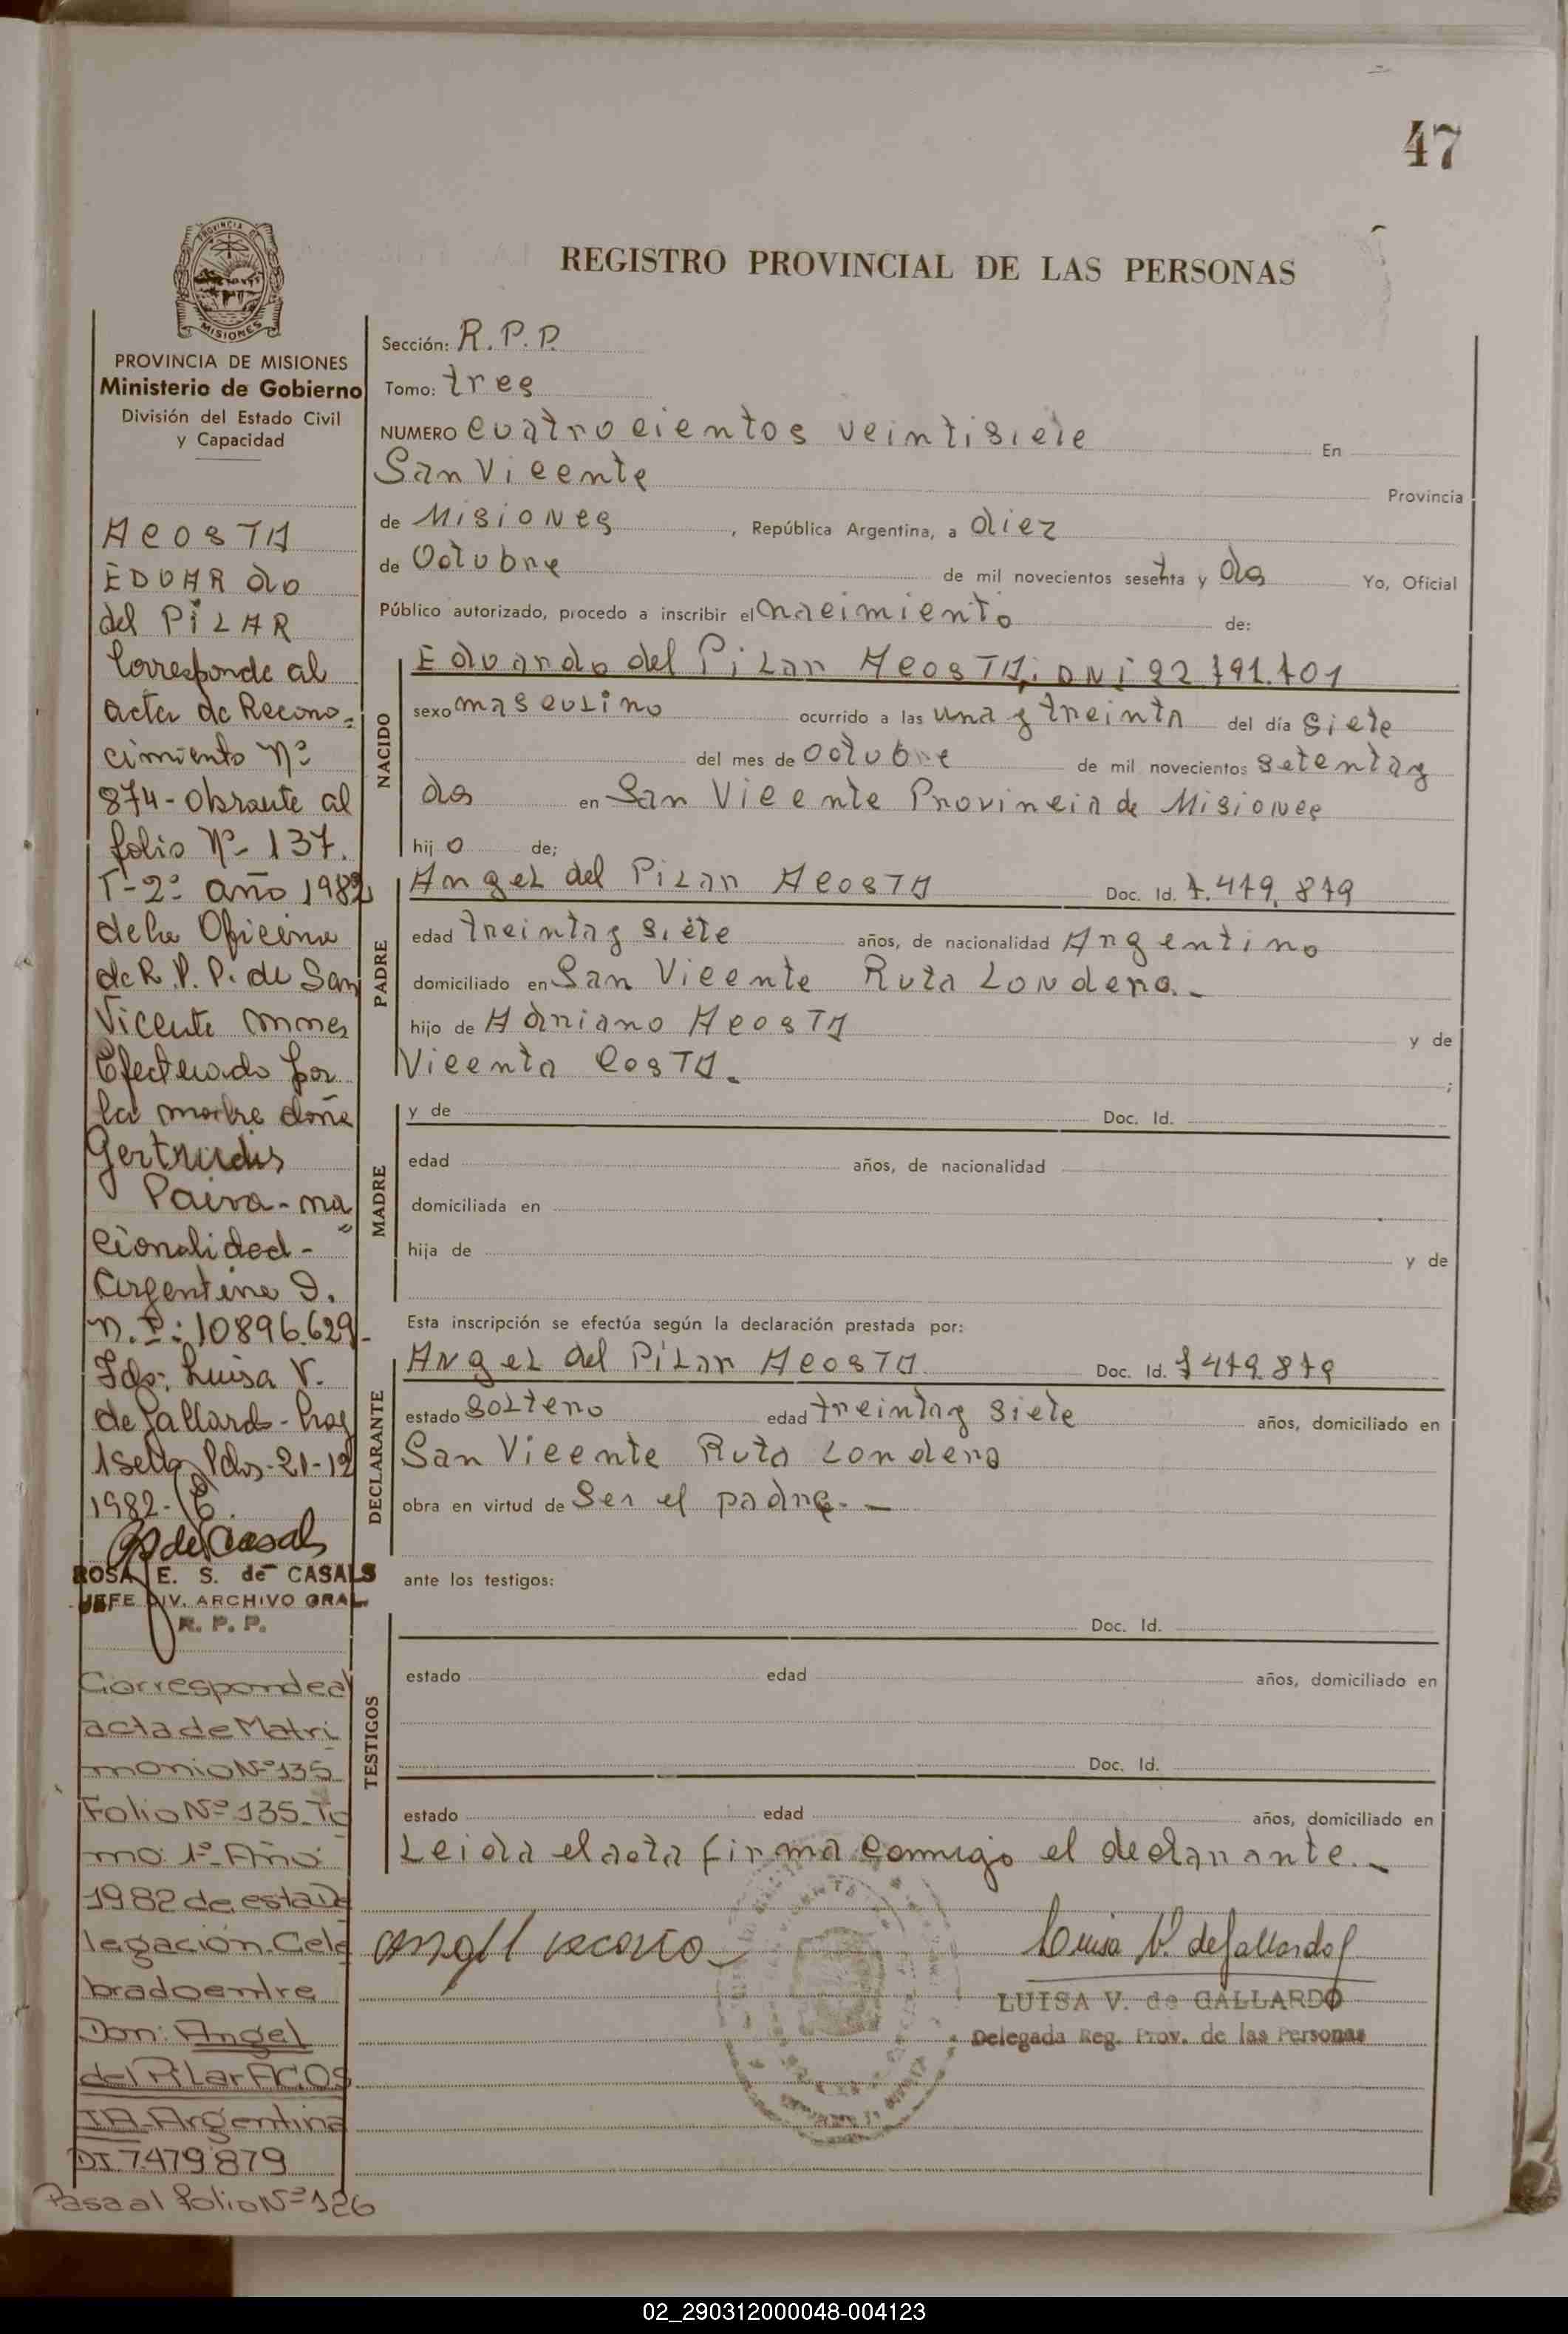 47
PROVINCIA DE
MISIONES
REGISTRO PROVINCIAL DE LAS PERSONAS
PROVINCIA DE MISIONES
Ministerio de Gobierno
División del Estado Civil
y Capacidad
ACOSTA
EDUARDO
del PiLAR
Corresponde al
acta de Recono=
cimiento Nº
874-Obrante al
folio Nº 137.
T-2º año 1982
de la Oficina
de R.P.P. de San
Vicente Mnes
Efectuado por
la madre doña
Gertrudis
Paiva-na
cionalidad-
Argentina D.
N.I: 10896.629-
Fdo: Luisa V.
de Gallardo-hay
1 sello Pdas-21-12
1982-
ROSA E. S. de CASALS
JEFE DIV. ARCHIVO GRAL
R. P. P.
Corresponde al
acta de Matri
monio Nº 135
Folio Nº 135 To
mo 1º Año
1982 de esta De
legación. Cele
brado entre
Don: Angel
del PiLar ACOS
TA-Argentina
DI 7479879
Pasa al folio Nº 126
Sección: R.P.P.
Tomo: tres
NUMERO cuatrocientos veintisiete En
San Vicente Provincia
de Misiones, República Argentina, a diez
de Octubre de mil novecientos sesenta y dos Yo, Oficial
Público autorizado, procedo a inscribir el nacimiento de:
NACIDO
Eduardo del PiLar ACOSTA; DNi 22 791.701
sexo mascuLino ocurrido a las una y treinta del día siete
del mes de octubre de mil novecientos setenta y
dos en San Vicente Provincia de Misiones
hijo de;
PADRE
AngeL del PiLar ACOSTA Doc. Id. 7.479.879
edad treinta y siete años, de nacionalidad Argentino
domiciliado en San Vicente Ruta Londero.-
hijo de Adriano ACOSTA y de
Vicenta COSTA.;
MADRE
y de Doc. Id.
edad años, de nacionalidad
domiciliada en
hija de y de
Esta inscripción se efectúa según la declaración prestada por:
DECLARANTE
ANgeL del PiLar ACOSTA Doc. Id. 7479879
estado soLtero edad treinta y siete años, domiciliado en
San Vicente Ruta Londero
obra en virtud de Ser el padre.-
ante los testigos:
TESTIGOS
Doc. Id.
estado edad años, domiciliado en
Doc. Id.
estado edad años, domiciliado en
Leida el acta firma conmigo el declarante.-
Luisa V. de Gallardo
LUISA V. de GALLARDO
Delegada Reg. Prov. de las Personas
02_290312000048-004123